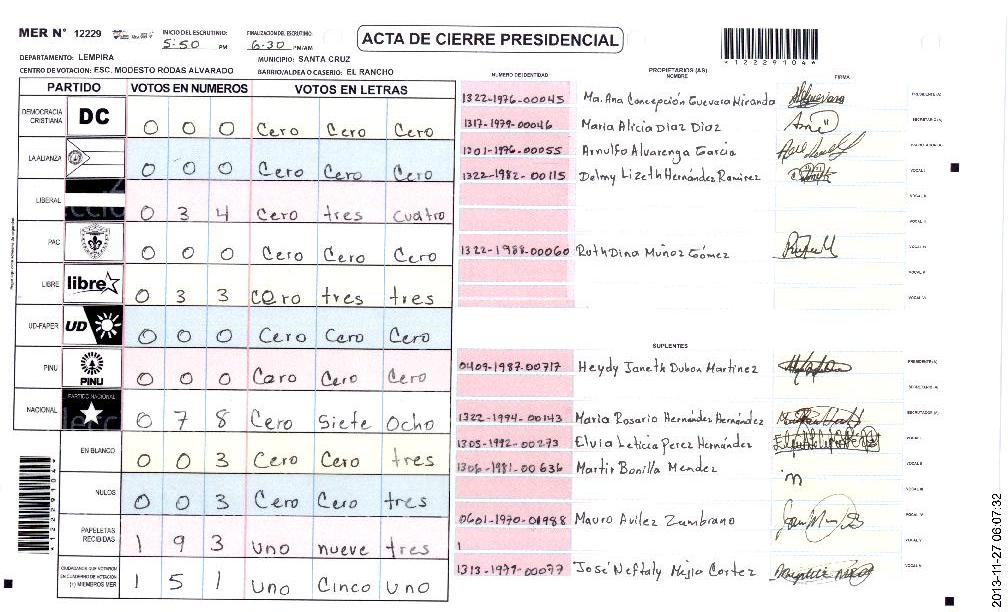 MER N° 12229 INICIO DEL ESCRUTINIO: 5:50 PM FINALIZACION DEL ESCRUTINIO: 6:30 PM/AM
ACTA DE CIERRE PRESIDENCIAL
*12229104*
DEPARTAMENTO: LEMPIRA MUNICIPIO: SANTA CRUZ
CENTRO DE VOTACION: ESC. MODESTO RODAS ALVARADO BARRIO/ALDEA O CASERIO: EL RANCHO
PARTIDO VOTOS EN NUMEROS VOTOS EN LETRAS
DEMOCRACIA CRISTIANA DC 0 0 0 Cero Cero Cero
LA ALIANZA 0 0 0 Cero Cero Cero
LIBERAL 0 3 4 Cero tres cuatro
PAC 0 0 0 Cero Cero Cero
LIBRE libre 0 3 3 cero tres tres
UD-FAPER UD 0 0 0 Cero Cero Cero
PINU PINU 0 0 0 Cero Cero Cero
NACIONAL PARTIDO NACIONAL 0 7 8 Cero Siete Ocho
EN BLANCO 0 0 3 Cero Cero tres
NULOS 0 0 3 Cero Cero tres
PAPELETAS RECIBIDAS 1 9 3 uno nueve tres
CIUDADANOS QUE VOTARON EN CUADERNO DE VOTACION (+) MIEMBROS MER 1 5 1 uno Cinco uno
NUMERO DE IDENTIDAD PROPIETARIOS (AS) NOMBRE FIRMA
1322-1976-00045 Ma. Ana Concepción Guevara Miranda PRESIDENTE(A)
1317-1979-00046 Maria Alicia Diaz Diaz SECRETARIO(A)
1201-1976-00055 Arnulfo Alvarenga Garcia ESCRUTADOR(A)
1322-1982-00115 Delmy Lizeth Hernández Ramirez VOCAL I
VOCAL II
VOCAL III
1322-1988-00060 Ruth Dina Muñoz Gómez VOCAL IV
VOCAL V
VOCAL VI
SUPLENTES
0409-1987-00717 Heydy Janeth Dubon Martinez PRESIDENTE(A)
SECRETARIO(A)
1322-1994-00143 Maria Rosario Hernández Hernández ESCRUTADOR(A)
1305-1992-00273 Elvia Leticia Perez Hernández VOCAL I
1306-1981-00636 Martir Bonilla Mendez VOCAL II
VOCAL III
0601-1970-01988 Mauro Avilez Zambrano VOCAL IV
VOCAL V
1313-1977-00077 José Neftaly Mejia Cortez VOCAL VI
*12229104*
2013-11-27 06:07:32